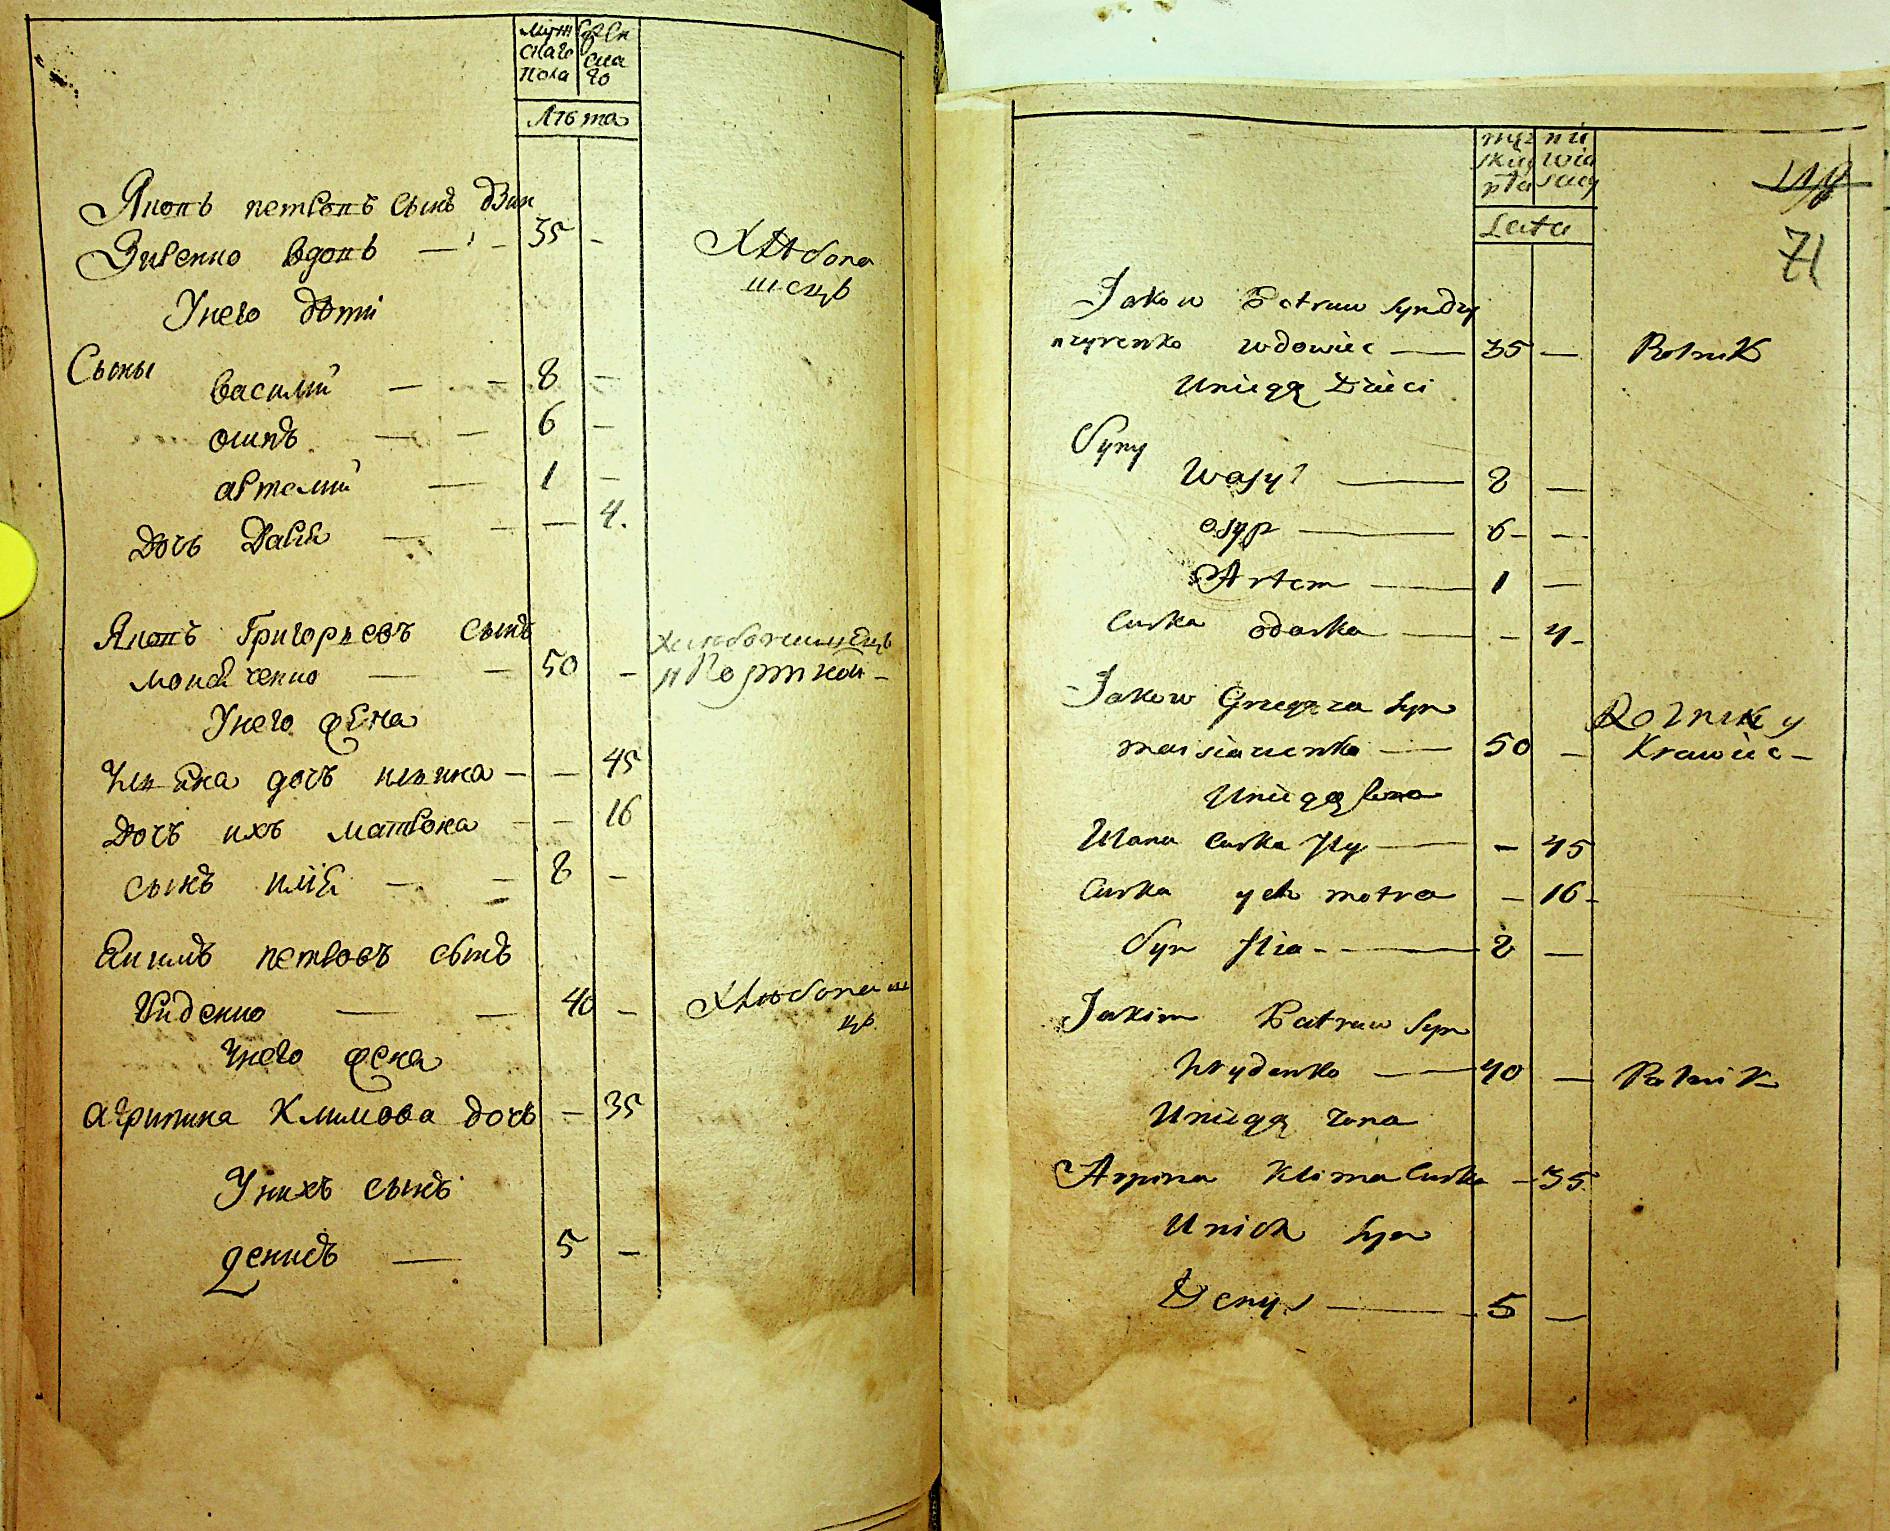 Муж скаго пола
жен ска го
Лѣта
Яковъ петровъ сынъ дзи
вдовъ — — 35 -
Хлѣбопа
шецъ
Унего дѣти
Сыны
василий — - 8 -
осипъ — — 6 -
артемий — 1 -
дочь Дарія — - — 4.
Яковъ Григорьевъ сынъ
— — 50 -
Унего жена
Ульяна дочь ильина - — 45
дочъ ихъ матрона - — 16
сынъ илія - - 8 -
Якимъ петровъ сынъ
— — 40 -
Хлѣбопаш
цъ
Унего жена
агрипина Климова дочь — 35
Унихъ сынъ
денисъ — 5 -
męz
skiey
płci
Lata
71
Jakow Petrow syn Dzy
wdowiec — 35 — Rolnik
Uniegą Dzieci
Syny
Wasyl — 8 —
osyp — 6 - —
Artem — 1 —
Curka odarka — - 4 -
Jakow Gregora syn
Rolnik y
— 50 — Krawiec -
Uniegą żona
Ulana Curka Jly — - 45
Curka ych motra - 16 -
Syn Jlia - — 8 —
Jakim Petrow syn
— 40 — Rolnik
Uniegą żona
Arpina Klima Curka - 35
Unich syn
Denys — 5 —